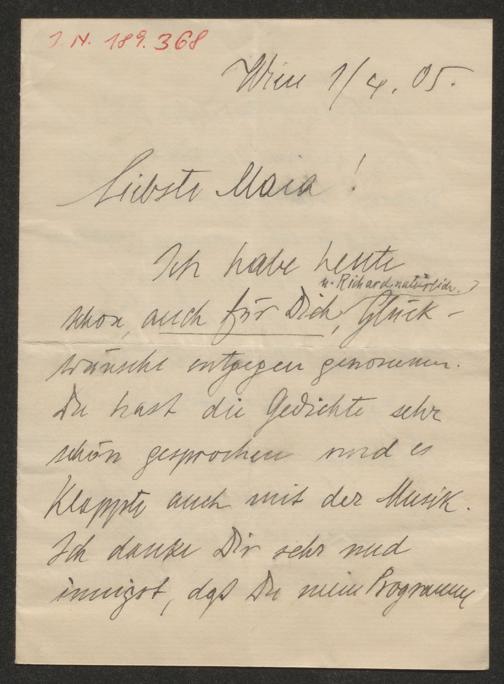 I. N. 189.368
Wien 1/4. 05.
Liebste Maia!
Ich habe heute
u. Richard natürlich.)
schon, auch für Dich, Glück-
wünsche entgegen genommen.
Du hast die Gedichte sehr
schön gesprochen und es
klappte auch mit der Musik.
Ich danke Dir sehr und
innigst, daß Du mein Programm